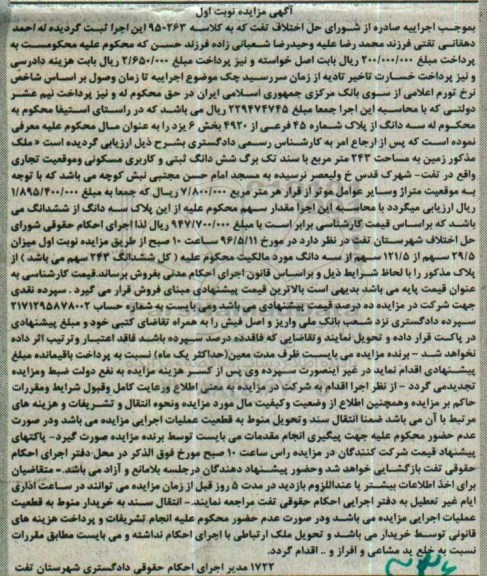 آگهی مزایده نوبت اول
بموجب اجراییه صادره از شورای حل اختلاف تفت که به کلاسه ۹۵۰۲۶۳ این اجرا ثبت گردیده له احمد
دهقانی تفتی فرزند محمد رضا علیه وحیدرضا شعبانی زاده فرزند حسن که محکوم علیه محکومست به
پرداخت مبلغ ۲۰۰/۰۰۰/۰۰۰ ریال بابت اصل خواسته و نیز پرداخت مبلغ ۲/۶۵۰/۰۰۰ ریال بابت هزینه دادرسی
و نیز پرداخت خسارت تاخیر تادیه از زمان سررسید چک موضوع اجراییه تا زمان وصول بر اساس شاخص
نرخ تورم اعلامی از سوی بانک مرکزی جمهوری اسلامی ایران در حق محکوم له و نیز پرداخت نیم عشر
دولتی که با محاسبه این اجرا جمعا مبلغ ۲۲۹۴۷۴۷۴۵ ریال می باشد که در راستای استیفا محکوم به
محکوم له سه دانگ از پلاک شماره ۴۵ فرعی از ۴۹۲۰ بخش ۶ یزد را به عنوان مال محکوم علیه معرفی
نموده است که پس از ارجاع امر به کارشناس رسمی دادگستری بشرح ذیل ارزیابی گردیده است «ملک
مذکور زمین به مساحت ۲۴۳ متر مربع با سند تک برگ شش دانگ ثبتی و کاربری مسکونی وموقعیت تجاری
واقع در تفت- شهرک قدس خ ولیعصر نرسیده به مسجد امام حسن مجتبی نبش کوچه می باشد که با توجه
به موقعیت متراژ وسایر عوامل موثر از قرار هر متر مربع ۷/۸۰۰/۰۰۰ ریال که جمعا به مبلغ ۱/۸۹۵/۴۰۰/۰۰۰
ریال ارزیابی میگردد با محاسبه این اجرا مقدار سهم محکوم علیه از این پلاک سه دانگ از ششدانگ می
باشد که براساس قیمت کارشناسی برابر است با مبلغ ۹۴۷/۷۰۰/۰۰۰ ریال لذا اجرای احکام حقوقی شورای
حل اختلاف شهرستان تفت در نظر دارد در مورخ ۹۶/۵/۱۱ ساعت ۱۰ صبح از طریق مزایده نوبت اول میزان
۲۹/۵ سهم از ۱۲۱/۵ سهم از سه دانگ مورد مالکیت محکوم علیه ( کل ششدانگ ۲۴۳ سهم می باشد ) از
پلاک مذکور را با لحاظ شرایط ذیل و براساس قانون اجرای احکام مدنی بفروش برساند.قیمت کارشناسی به
عنوان قیمت پایه می باشد بدیهی است بالاترین قیمت پیشنهادی مبنای فروش قرار می گیرد . سپرده نقدی
جهت شرکت در مزایده ده درصد قیمت پیشنهادی می باشد ومی بایست به شماره حساب ۲۱۷۱۲۹۵۸۷۸۰۰۲
سپرده دادگستری نزد شعب بانک ملی واریز و اصل فیش را به همراه تقاضای کتبی خود و مبلغ پیشنهادی
در پاکت قرار داده و تحویل نمایند وتقاضایی که فاقدده درصد سپرده باشد فاقد اعتبار وترتیب اثر داده
نخواهد شد - برنده مزایده می بایست ظرف مدت معین(حداکثر یک ماه) نسبت به پرداخت باقیمانده مبلغ
پیشنهادی اقدام نماید در غیر اینصورت سپرده وی پس از کسر هزینه مزایده به نفع دولت ضبط ومزایده
تجدیدمی گردد - از نظر اجرا اقدام به شرکت در مزایده به معنی اطلاع ورعایت کامل وقبول شرایط ومقررات
حاکم بر مزایده وهمچنین اطلاع از وضعیت وکیفیت مال مورد مزایده ونحوه انتقال و تشریفات و هزینه های
مرتبط با آن می باشد ضمنا انتقال سند وتحویل منوط به قطعیت عملیات اجرایی مزایده می باشد ودر صورت
عدم حضور محکوم علیه جهت پیگیری انجام مقدمات می بایست توسط برنده مزایده صورت گیرد- پاکتهای
پیشنهاد قیمت شرکت کنندگان در مزایده راس ساعت ۱۰ صبح مورخ فوق الذکر در محل دفتر اجرای احکام
حقوقی تفت بازگشایی خواهد شد وحضور پیشنهاد دهندگان درجلسه بلامانع و آزاد می باشد.- متقاضیان
برای اخذ اطلاعات بیشتر یا عنداللزوم بازدید در مدت ۵ روز قبل از زمان مزایده می توانند در ساعت اداری
ایام غیر تعطیل به دفتر اجرایی احکام حقوقی تفت مراجعه نمایند.- انتقال سند به خریدار منوط به قطعیت
عملیات اجرایی مزایده می باشد ودر صورت عدم حضور محکوم علیه انجام تشریفات و پرداخت هزینه های
قانونی توسط خریدار می باشد و تحویل ملک ارتباطی با اجرای احکام نداشته و می بایست مطابق مقررات
نسبت به خلع ید مشاعی و افراز و .. اقدام گردد.
۱۷۲۲ مدیر اجرای احکام حقوقی دادگستری شهرستان تفت